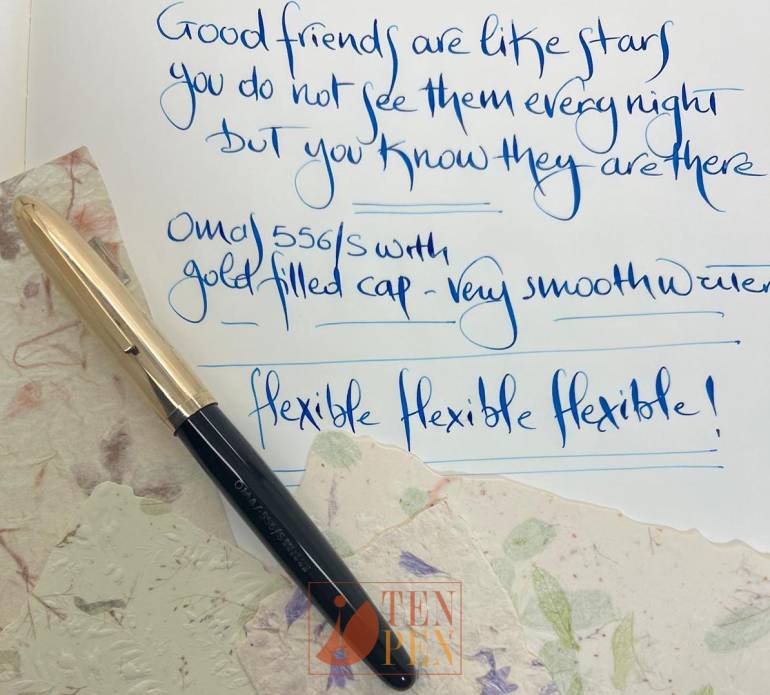 Good friends are like stars
you do not see them every night
but you know they are there
Omas 556/S with
gold filled cap - very smooth writer
flexible flexible flexible!
OMAS 556/S
TEN
PEN